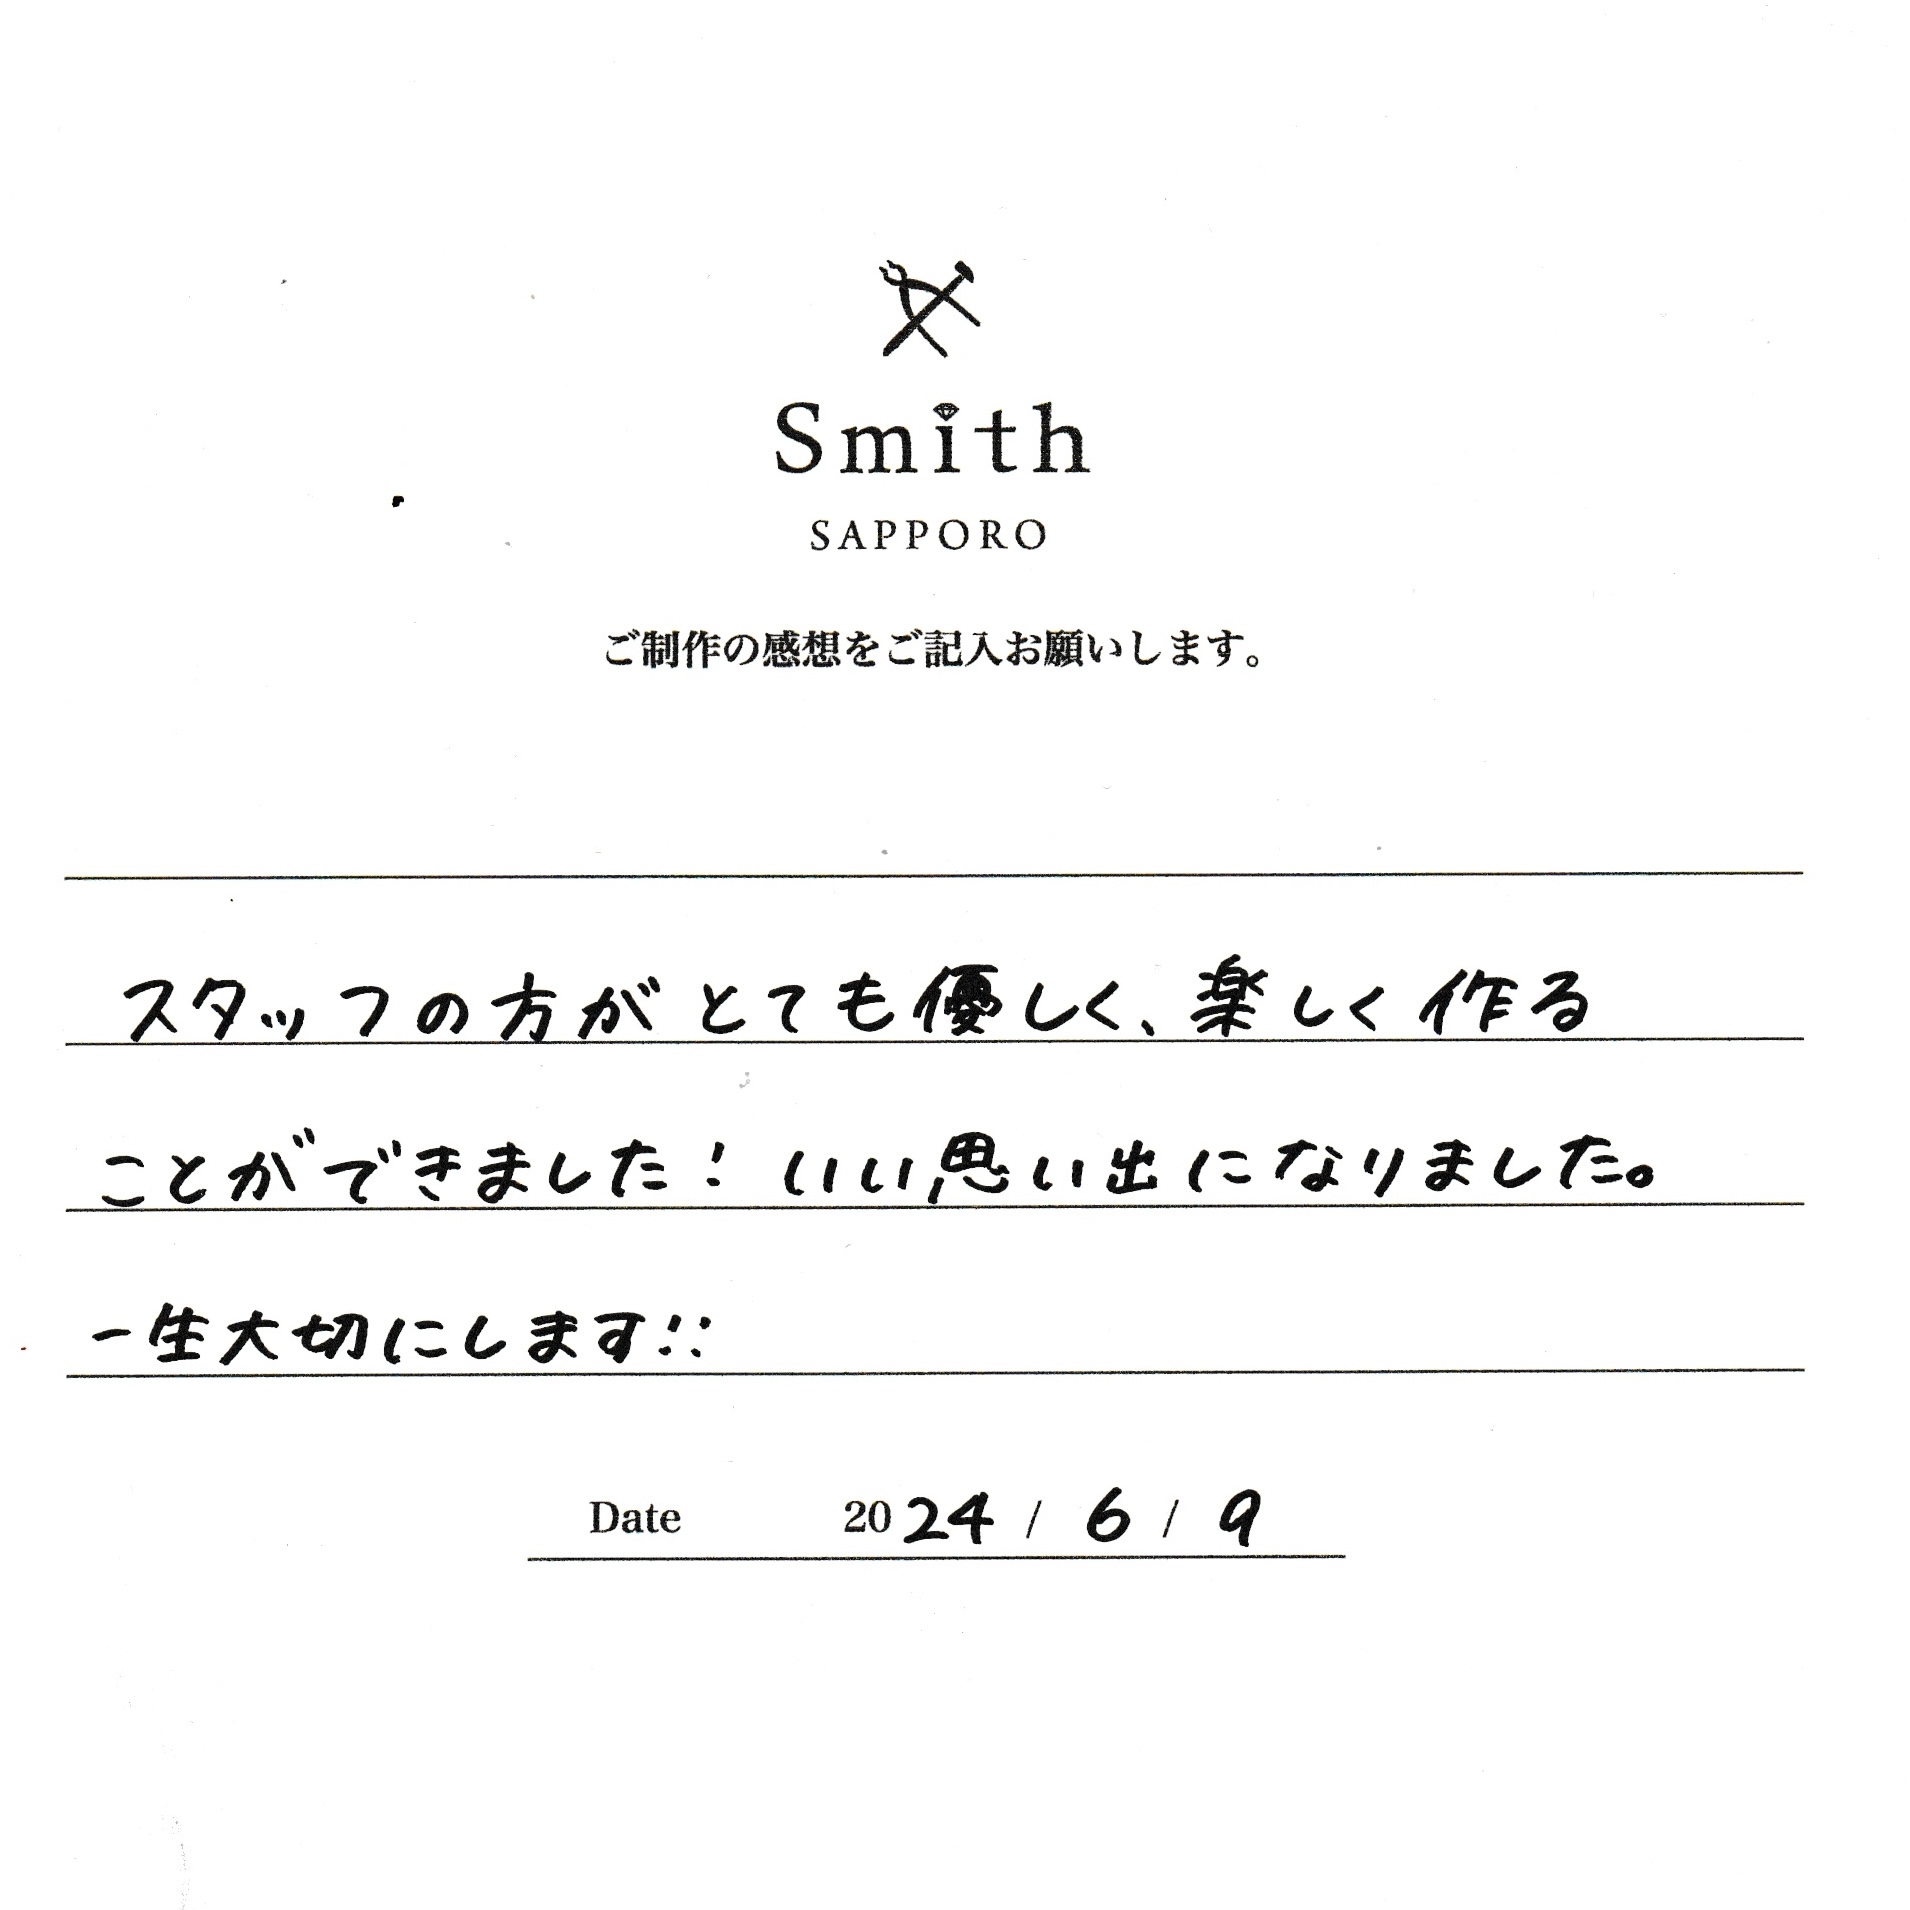 Smith
SAPPORO
ご制作の感想をご記入お願いします。
スタッフの方がとても優しく、楽しく作る
ことができました！いい思い出になりました。
一生大切にします!!
Date 2024 / 6 / 9